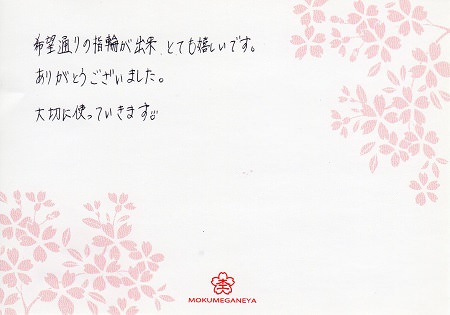 希望通りの指輪が出来、とても嬉しいです。
ありがとうございました。
大切に使っていきます
MOKUMEGANEYA